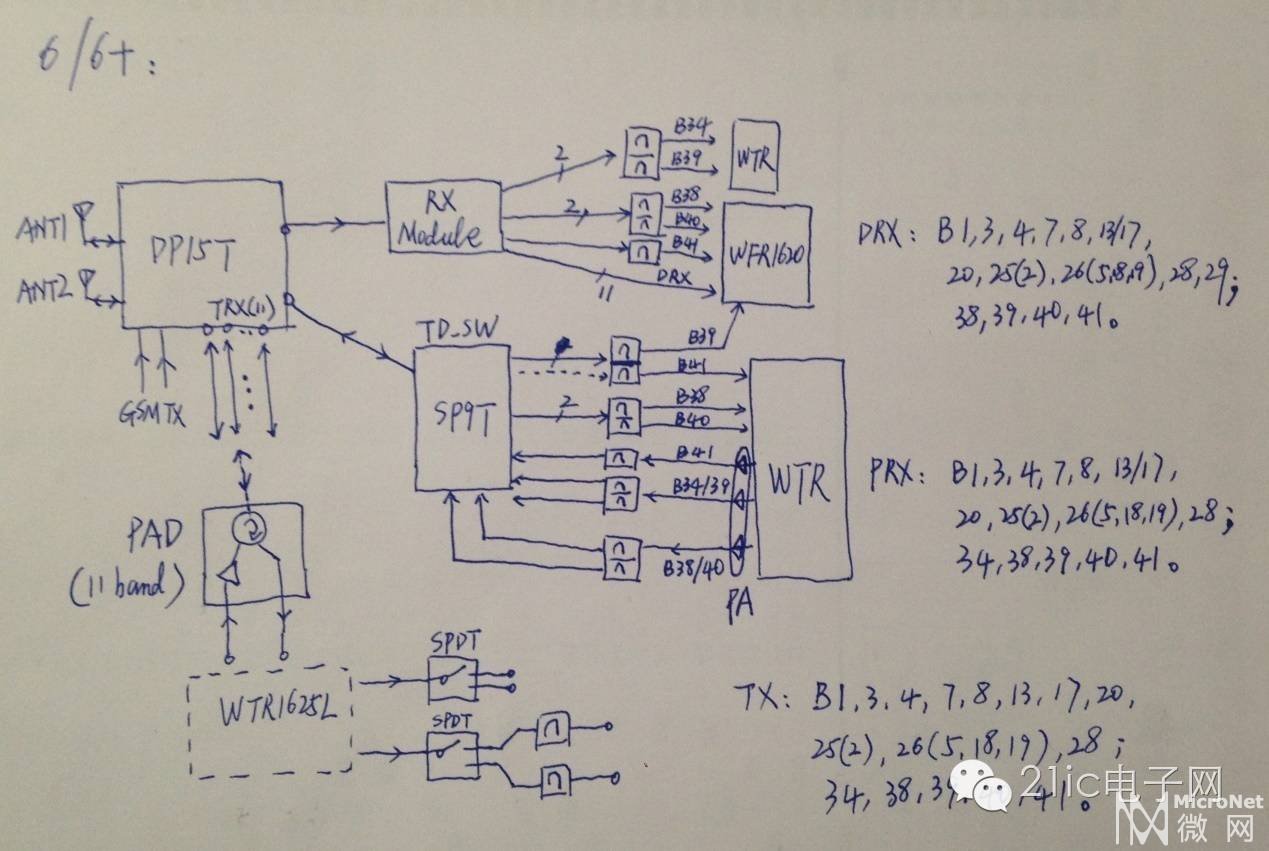 6/6+:
B34
2
B39
WTR
ANT1
DP15T
RX
Module
2
B38
B40
B41
WFR1620
DRX: B1,3,4,7,8,13/17,
20,25(2),26(5,8,9),28,29;
38,39,40,41。
ANT2
TRX(11)
DRX
11
TD_SW
B39
B41
GSMTX
SP9T
2
B38
B40
B41
B34/39
WTR
PRX: B1,3,4,7,8,13/17,
20,25(2),26(5,18,19),28;
34,38,39,40,41。
PAD
(11 band)
B38/40
PA
SPDT
WTR1625L
SPDT
TX: B1,3,4,7,8,13,17,20,
25(2),26(5,18,19),28;
34,38,39,40,41。
21ic电子网
MicroNet
微网